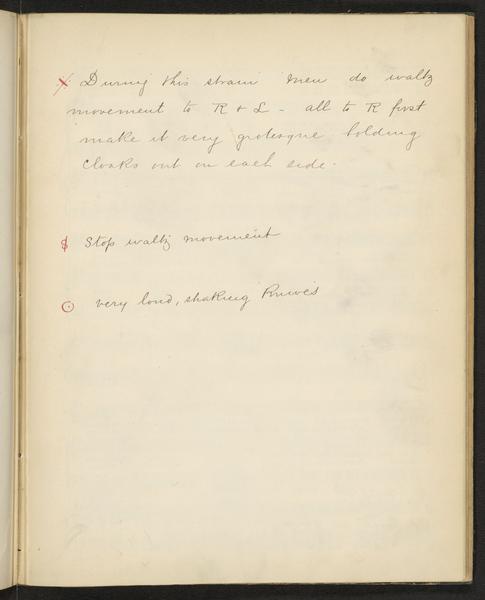 X During this strain men do waltz
movement to R & L - all to R first
make it very grotesque holding
cloaks out on each side.
$ Stop waltz movement
⊙ very loud, shaking Knives